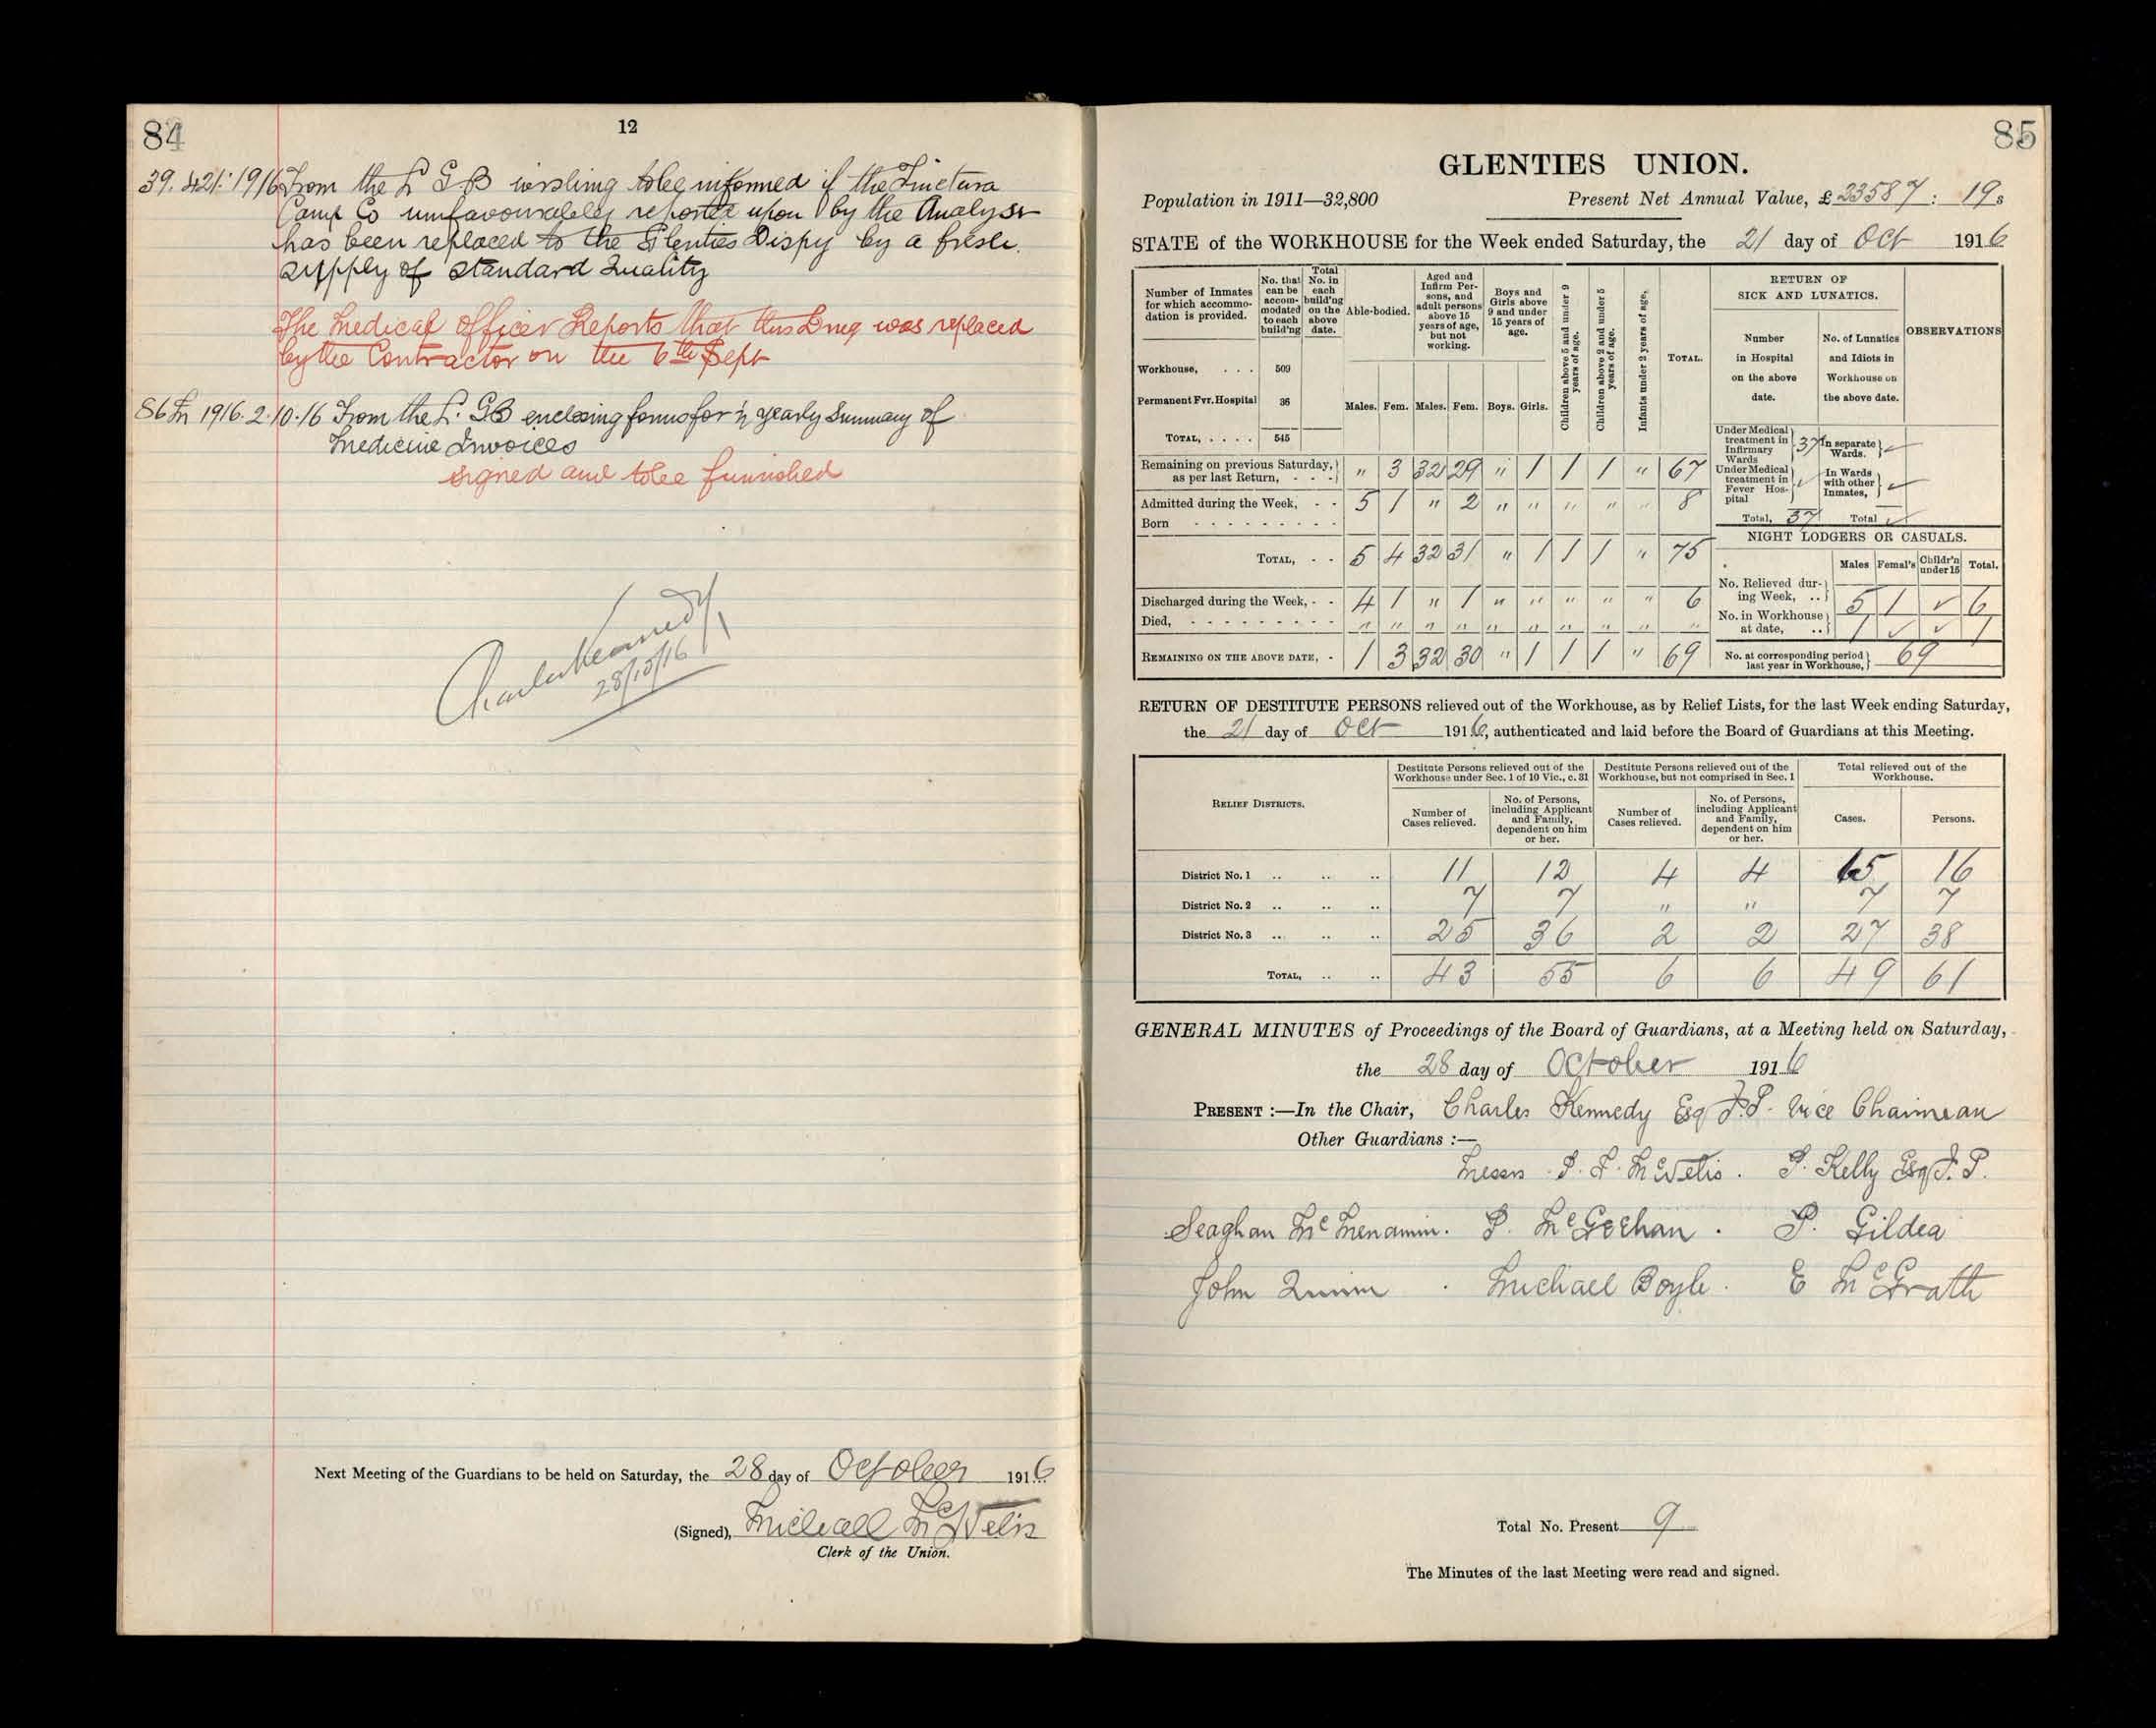 84
12
39.421:1916 From the L G B wishing to be informed if the Tinctura
Camp Co unfavourably reported upon by the Analyst
has been replaced to the Glenties Dispy by a fresh
supply of standard Quality
The Medical Officer Reports that this Drug was replaced
by the Contractor on the 6th Sept
1916. 2.10.16 From the L. G B enclosing forms for ½ yearly Summary of
Medicine Invoices
signed and to be furnished
Charles Kennedy
28/10/16
Next Meeting of the Guardians to be held on Saturday, the 28 day of October 1916
(Signed), Michael McNelis
Clerk of the Union.
85
GLENTIES UNION.
Population in 1911—32,800 Present Net Annual Value, £23587 : 19s
STATE of the WORKHOUSE for the Week ended Saturday, the 21 day of Oct 1916
Number of Inmates for which accommodation is provided.
No. that can be accommodated to each build'ng
Total No. in each build'ng on the above date.
Able-bodied.
Aged and Infirm Persons, and adult persons above 15 years of age, but not working.
Boys and Girls above 9 and under 15 years of age.
Children above 5 and under 9 years of age.
Children above 2 and under 5 years of age.
Infants under 2 years of age.
TOTAL.
RETURN OF SICK AND LUNATICS.
Number in Hospital on the above date.
No. of Lunatics and Idiots in Workhouse on the above date.
OBSERVATIONS
Workhouse, . . . 509
Permanent Fvr. Hospital 36
TOTAL, . . . . 545
Males. Fem. Males. Fem. Boys. Girls.
Remaining on previous Saturday, as per last Return, - - - " 3 32 29 " 1 1 1 " 67
Admitted during the Week, - - 5 1 " 2 " " " " " 8
Born - - - - - - - - -
TOTAL, - - 5 4 32 31 " 1 1 1 " 75
Discharged during the Week, - - 4 1 " 1 " " " " " 6
Died, - - - - - - - - - " " " " " " " " " "
REMAINING ON THE ABOVE DATE, - 1 3 32 30 " 1 1 1 " 69
Under Medical treatment in Infirmary Wards 37 In separate Wards. ✓
Under Medical treatment in Fever Hospital ✓ In Wards with other Inmates, ✓
Total, 37 Total ✓
NIGHT LODGERS OR CASUALS.
Males Femal's Childr'n under 15 Total.
No. Relieved during Week, .. 5 1 ✓ 6
No. in Workhouse at date, .. 1 ✓ ✓ 1
No. at corresponding period last year in Workhouse, 69
RETURN OF DESTITUTE PERSONS relieved out of the Workhouse, as by Relief Lists, for the last Week ending Saturday,
the 21 day of Oct 1916, authenticated and laid before the Board of Guardians at this Meeting.
RELIEF DISTRICTS.
Destitute Persons relieved out of the Workhouse under Sec. 1 of 10 Vic., c. 31
Destitute Persons relieved out of the Workhouse, but not comprised in Sec. 1
Total relieved out of the Workhouse.
Number of Cases relieved.
No. of Persons, including Applicant and Family, dependent on him or her.
Number of Cases relieved.
No. of Persons, including Applicant and Family, dependent on him or her.
Cases.
Persons.
District No. 1 .. .. .. 11 12 4 4 15 16
District No. 2 .. .. .. 7 7 " " 7 7
District No. 3 .. .. .. 25 36 2 2 27 38
TOTAL, .. .. 43 55 6 6 49 61
GENERAL MINUTES of Proceedings of the Board of Guardians, at a Meeting held on Saturday,
the 28 day of October 1916
PRESENT :—In the Chair, Charles Kennedy Esq J.P. Vice Chairman
Other Guardians :—
Messrs P. F. McNelis. P. Kelly Esq J. P.
Seaghan McMenamin. P. McGeehan. P. Gildea
John Quinn. Michael Boyle. E McGrath
Total No. Present 9
The Minutes of the last Meeting were read and signed.